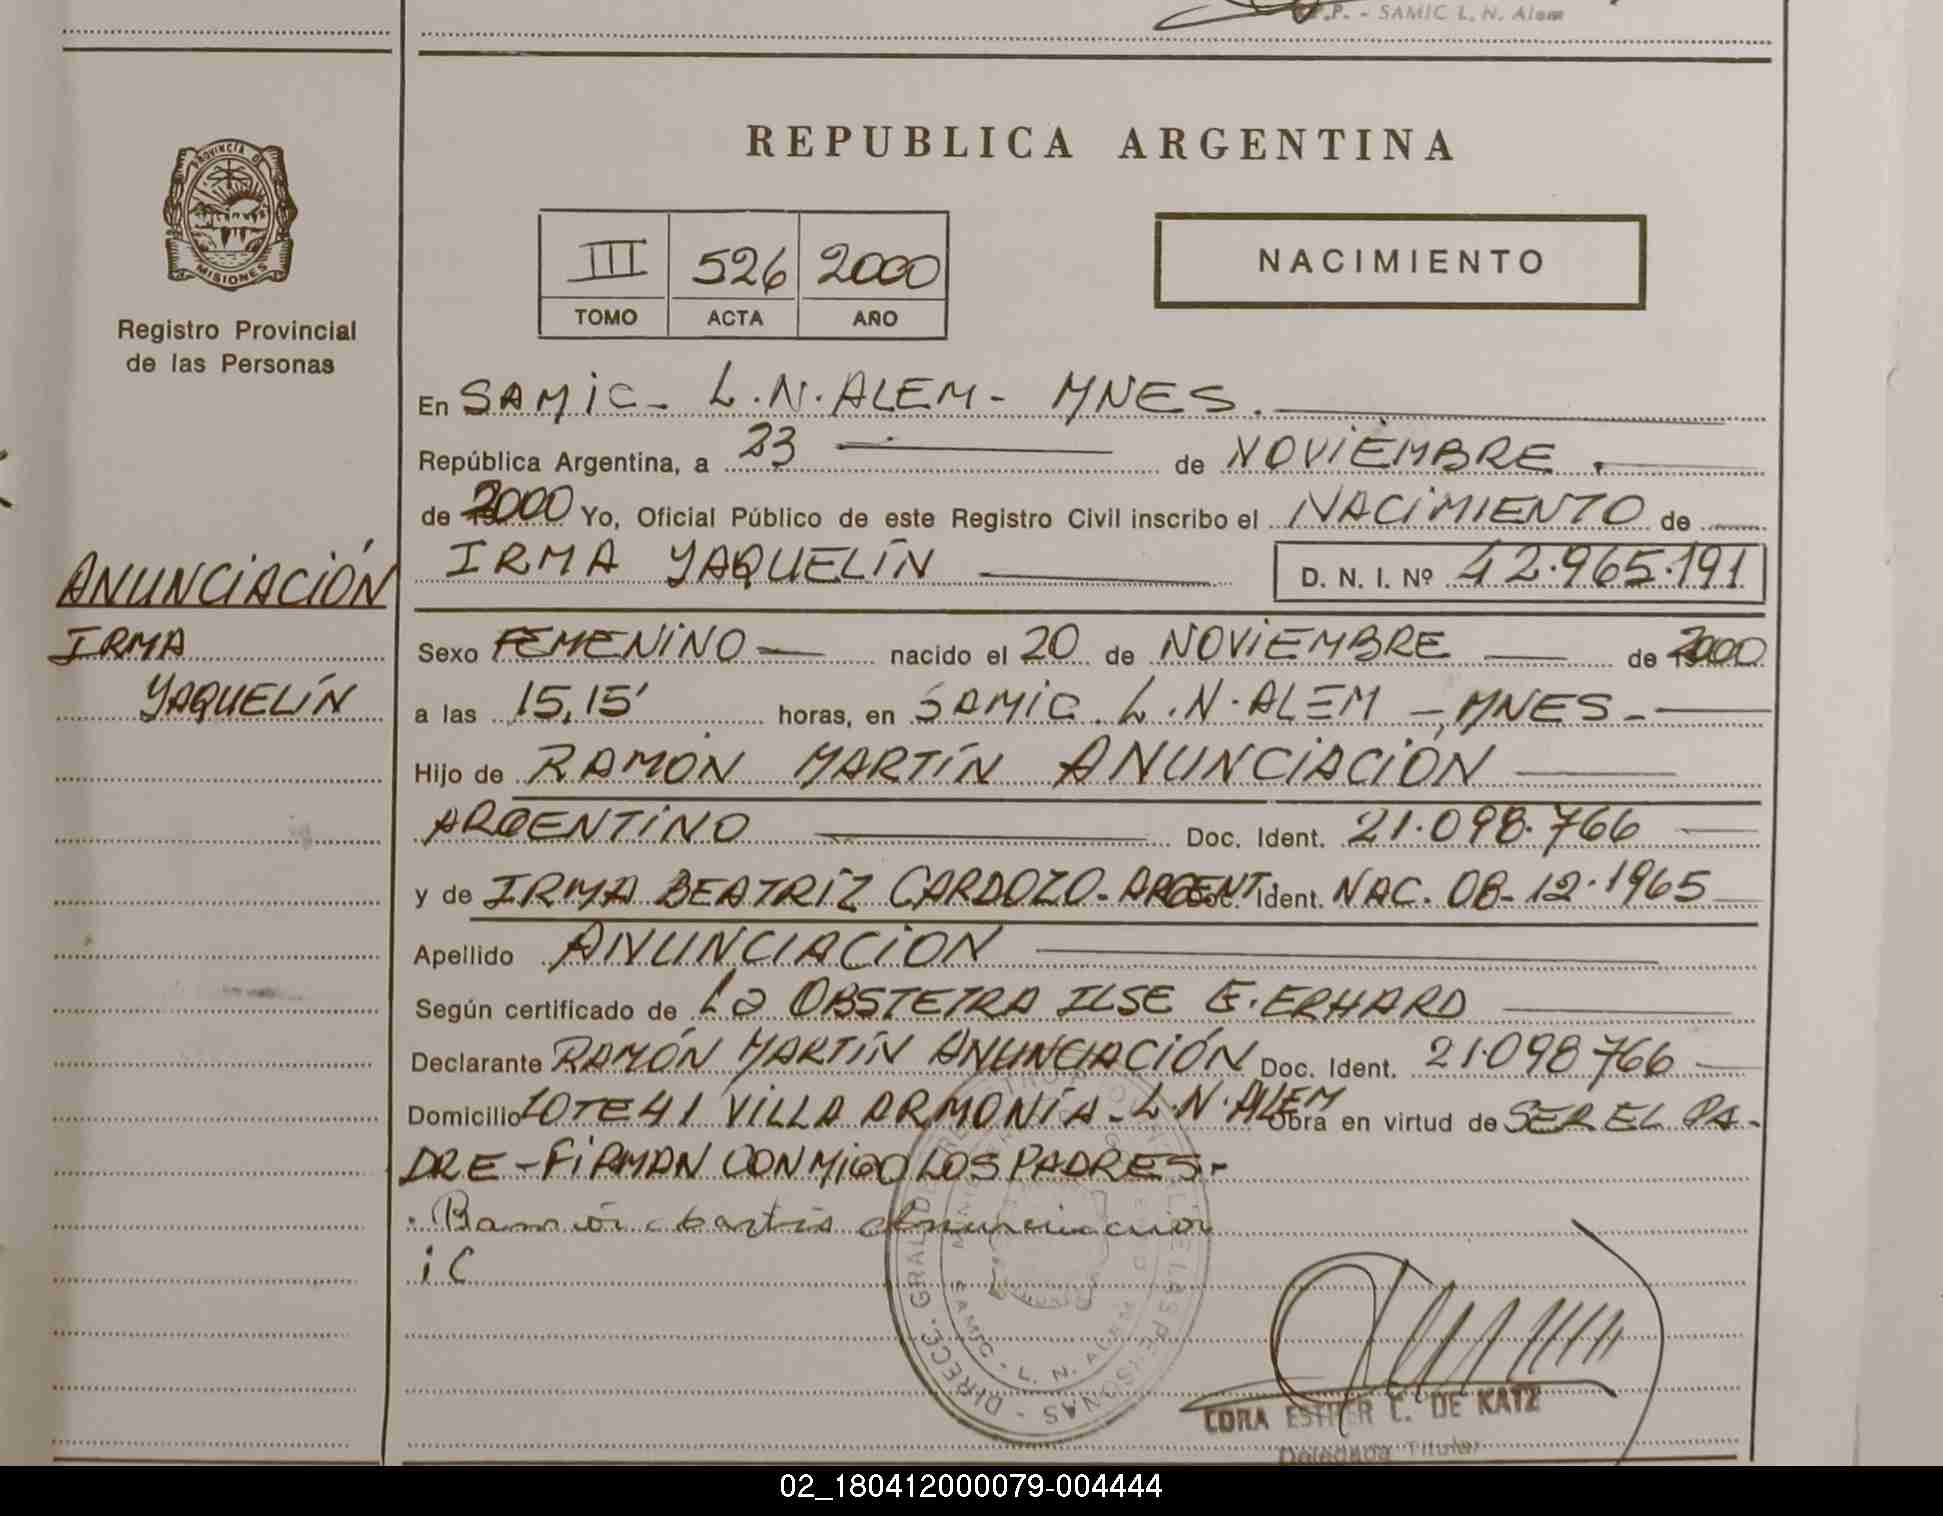 P. - SAMIC L. N. Alem
REPUBLICA ARGENTINA
PROVINCIA DE
MISIONES
Registro Provincial
de las Personas
III 526 2000
TOMO ACTA AÑO
NACIMIENTO
En SAMIC - L.N. ALEM - MNES.
República Argentina, a 23 de NOVIEMBRE.
de 2000 Yo, Oficial Público de este Registro Civil inscribo el NACIMIENTO de
IRMA YAQUELÍN D. N. I. Nº 42.965.191
ANUNCIACIÓN
IRMA
YAQUELÍN
Sexo FEMENINO nacido el 20 de NOVIEMBRE de 2000
a las 15,15' horas, en SAMIC. L.N. ALEM - MNES -
Hijo de RAMÓN MARTÍN ANUNCIACIÓN
ARGENTINO Doc. Ident. 21.098.766
y de IRMA BEATRÍZ CARDOZO - ARGENT. Doc. Ident. NAC. 08-12-1965
Apellido ANUNCIACION
Según certificado de La OBSTETRA ILSE E. ERHARD
Declarante RAMÓN MARTÍN ANUNCIACIÓN Doc. Ident. 21.098766
Domicilio LOTE 41 VILLA ARMONÍA - L.N. ALEM Obra en virtud de SER EL PA-
DRE - FIRMAN CONMIGO LOS PADRES -
Ramón Martín Anunciacion
i C
DIRECC. GRAL. DEL REGISTRO PROVINCIAL DE LAS PERSONAS
SAMIC - L. N. ALEM
CORA ESTHER C. DE KATZ
Delegada Titular
02_180412000079-004444